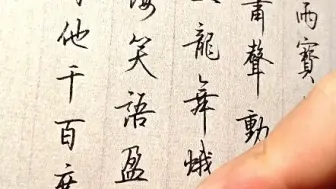 雨寶
簫聲動
龍舞蛾
縷笑語盈
他千百度